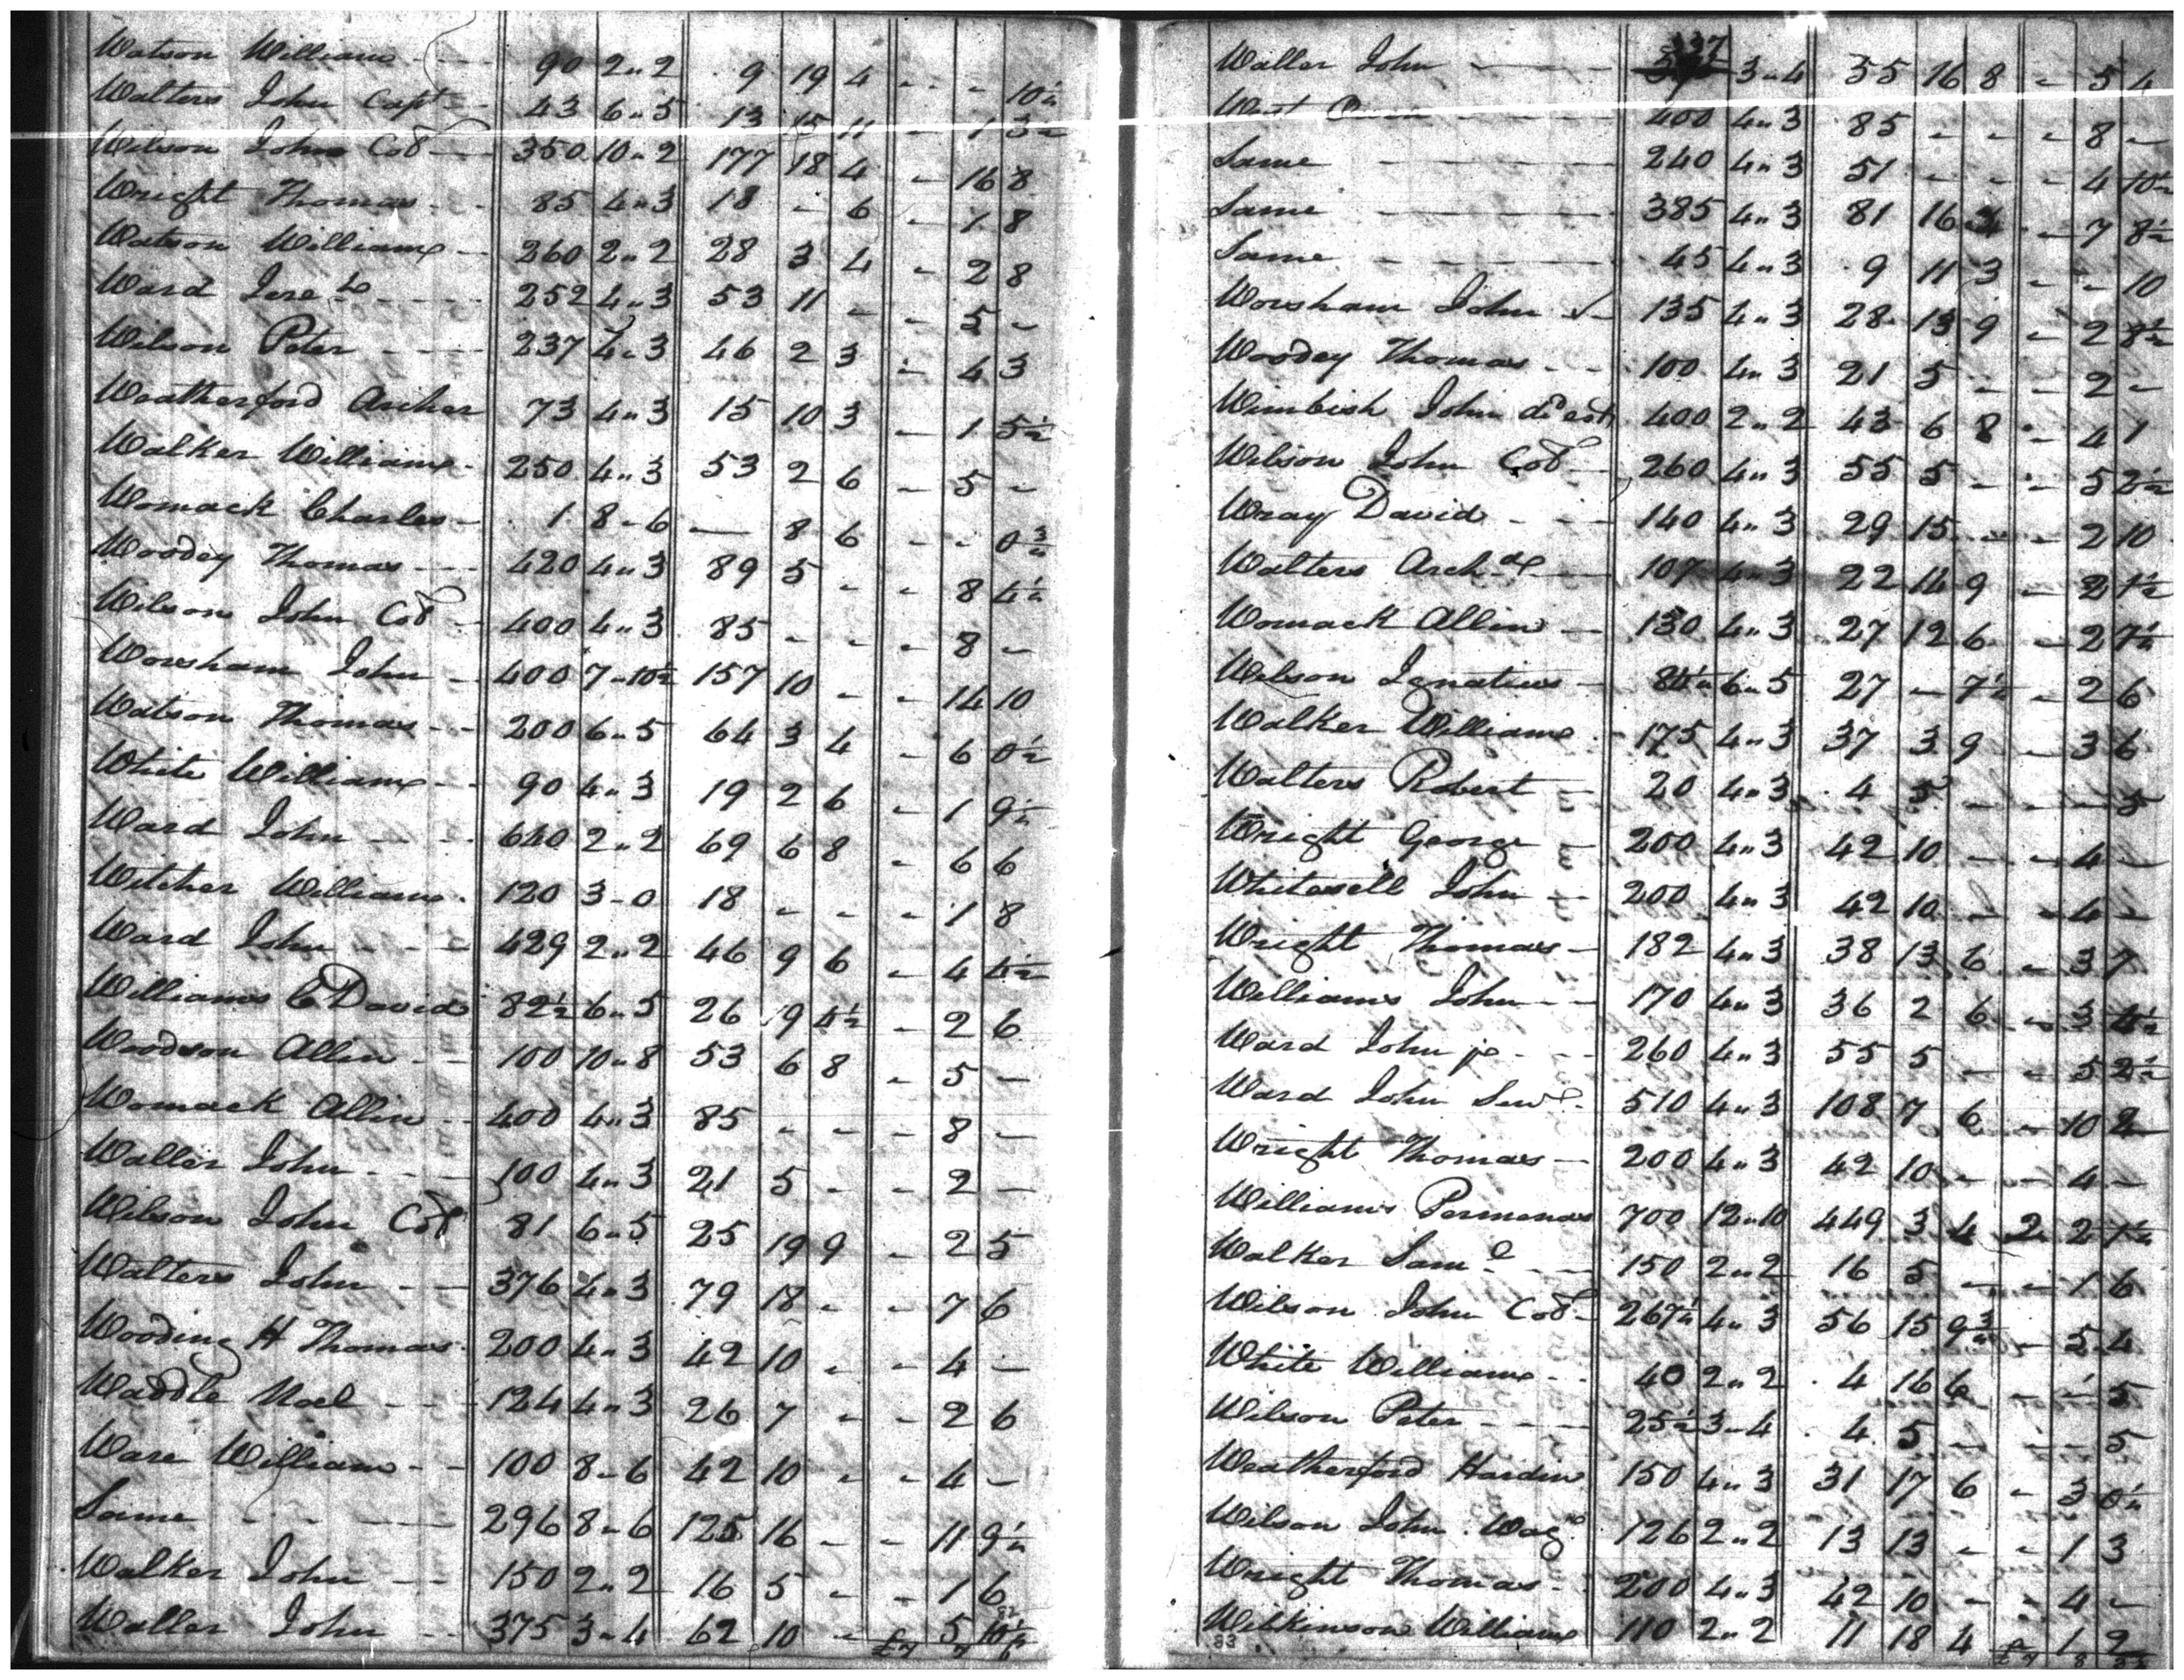 Watson William - - 90 2 " 2 9 19 4 - - 10½
Walters John Capt - 43 6 " 5 13 15 11 - 1 3½
Wilson John Col - 350 10 " 2 177 18 4 - 16 8
Wright Thomas - - 85 4 " 3 18 - 6 - 1 8
Watson William - 260 2 " 2 28 3 4 - 2 8
Ward Jere - - 252 4 " 3 53 11 - - 5 -
Wilson Peter - - 237 4 " 3 46 2 3 - 4 3
Weatherford Archer 73 4 " 3 15 10 3 - 1 5½
Walker William - 250 4 " 3 53 2 6 - 5 -
Womack Charles - 1 8 - 6 - 8 6 - - 0¾
Woodey Thomas - - 420 4 " 3 89 5 - - 8 4½
Wilson John Col - 400 4 " 3 85 - - - 8 -
Worsham John - 400 7 - 10½ 157 10 - - 14 10
Watson Thomas - - 200 6 " 5 64 3 4 - 6 0½
White William - - 90 4 " 3 19 2 6 - 1 9½
Ward John - - 640 2 " 2 69 6 8 - 6 6
Witcher William - 120 3 - 0 18 - - - 1 8
Ward John - - - 429 2 " 2 46 9 6 - 4 4½
Williams C David 82½ 6 " 5 26 9 4½ - 2 6
Woodson Allin - - 100 10 " 8 53 6 8 - 5 -
Womack Allin - - 400 4 " 3 85 - - - 8 -
Waller John - - - 100 4 " 3 21 5 - - 2 -
Wilson John Col 81 6 " 5 25 19 9 - 2 5
Walters John - - 376 4 " 3 79 18 - - 7 6
Wooding H Thomas 200 4 " 3 42 10 - - 4 -
Waddle Noel - - - 124 4 " 3 26 7 - - 2 6
Ware William - - 100 8 - 6 42 10 - - 4 -
Same - - - 296 8 - 6 125 16 - - 11 9½
Walker John - - 150 2 " 2 16 5 - - 1 6
Waller John - - 375 3 - 4 62 10 - 5 10½
82
£7 7 6
Waller John - 337 3 " 4 55 16 8 - 5 4
West Owen - 400 4 " 3 85 - - - 8 -
Same - - - 240 4 " 3 51 - - - 4 10½
Same - - - 385 4 " 3 81 16 3 - 7 8½
Same - - - 45 4 " 3 9 11 3 - - 10
Worsham John - 135 4 " 3 28 13 9 - 2 8½
Woodey Thomas - - 100 4 " 3 21 5 - - 2 -
Wimbish John 400 2 " 2 43 6 8 - 4 1
Wilson John Col - 260 4 " 3 55 5 - - 5 2½
Wray David - - - 140 4 " 3 29 15 - - 2 10
Walters Archd - 107 4 " 3 22 14 9 - 2 1½
Womack Allin - 130 4 " 3 27 12 6 - 2 7½
Wilson Ignatius - 6 " 5 27 - 7½ - 2 6
Walker William - 175 4 " 3 37 3 9 - 3 6
Walters Robert - 20 4 " 3 4 5 - - - 5
Wright George - 200 4 " 3 42 10 - - 4 -
Whitesell John - - 200 4 " 3 42 10 - - 4 -
Wright Thomas - 182 4 " 3 38 13 6 - 3 7
Williams John - - 170 4 " 3 36 2 6 - 3 4½
Ward John jr - - 260 4 " 3 55 5 - - 5 2½
Ward John Senr - 510 4 " 3 108 7 6 - 10 2
Wright Thomas - 200 4 " 3 42 10 - - 4 -
Williams Permenas 700 12 " 10 449 3 4 2 2 1½
Walker Saml - - 150 2 " 2 16 5 - - 1 6
Wilson John Col - 267½ 4 " 3 56 15 9¾ - 5 4
White William - - 40 2 " 2 4 16 6 - - 5
Wilson Peter - - - 25½ 3 - 4 4 5 - - - 5
Weatherford Hardin 150 4 " 3 31 17 6 - 3 0½
Wilson John Wag 126 2 " 2 13 13 - - 1 3
Wright Thomas - 200 4 " 3 42 10 - - 4 -
Wilkinson William 110 2 " 2 11 18 4 1 2
83